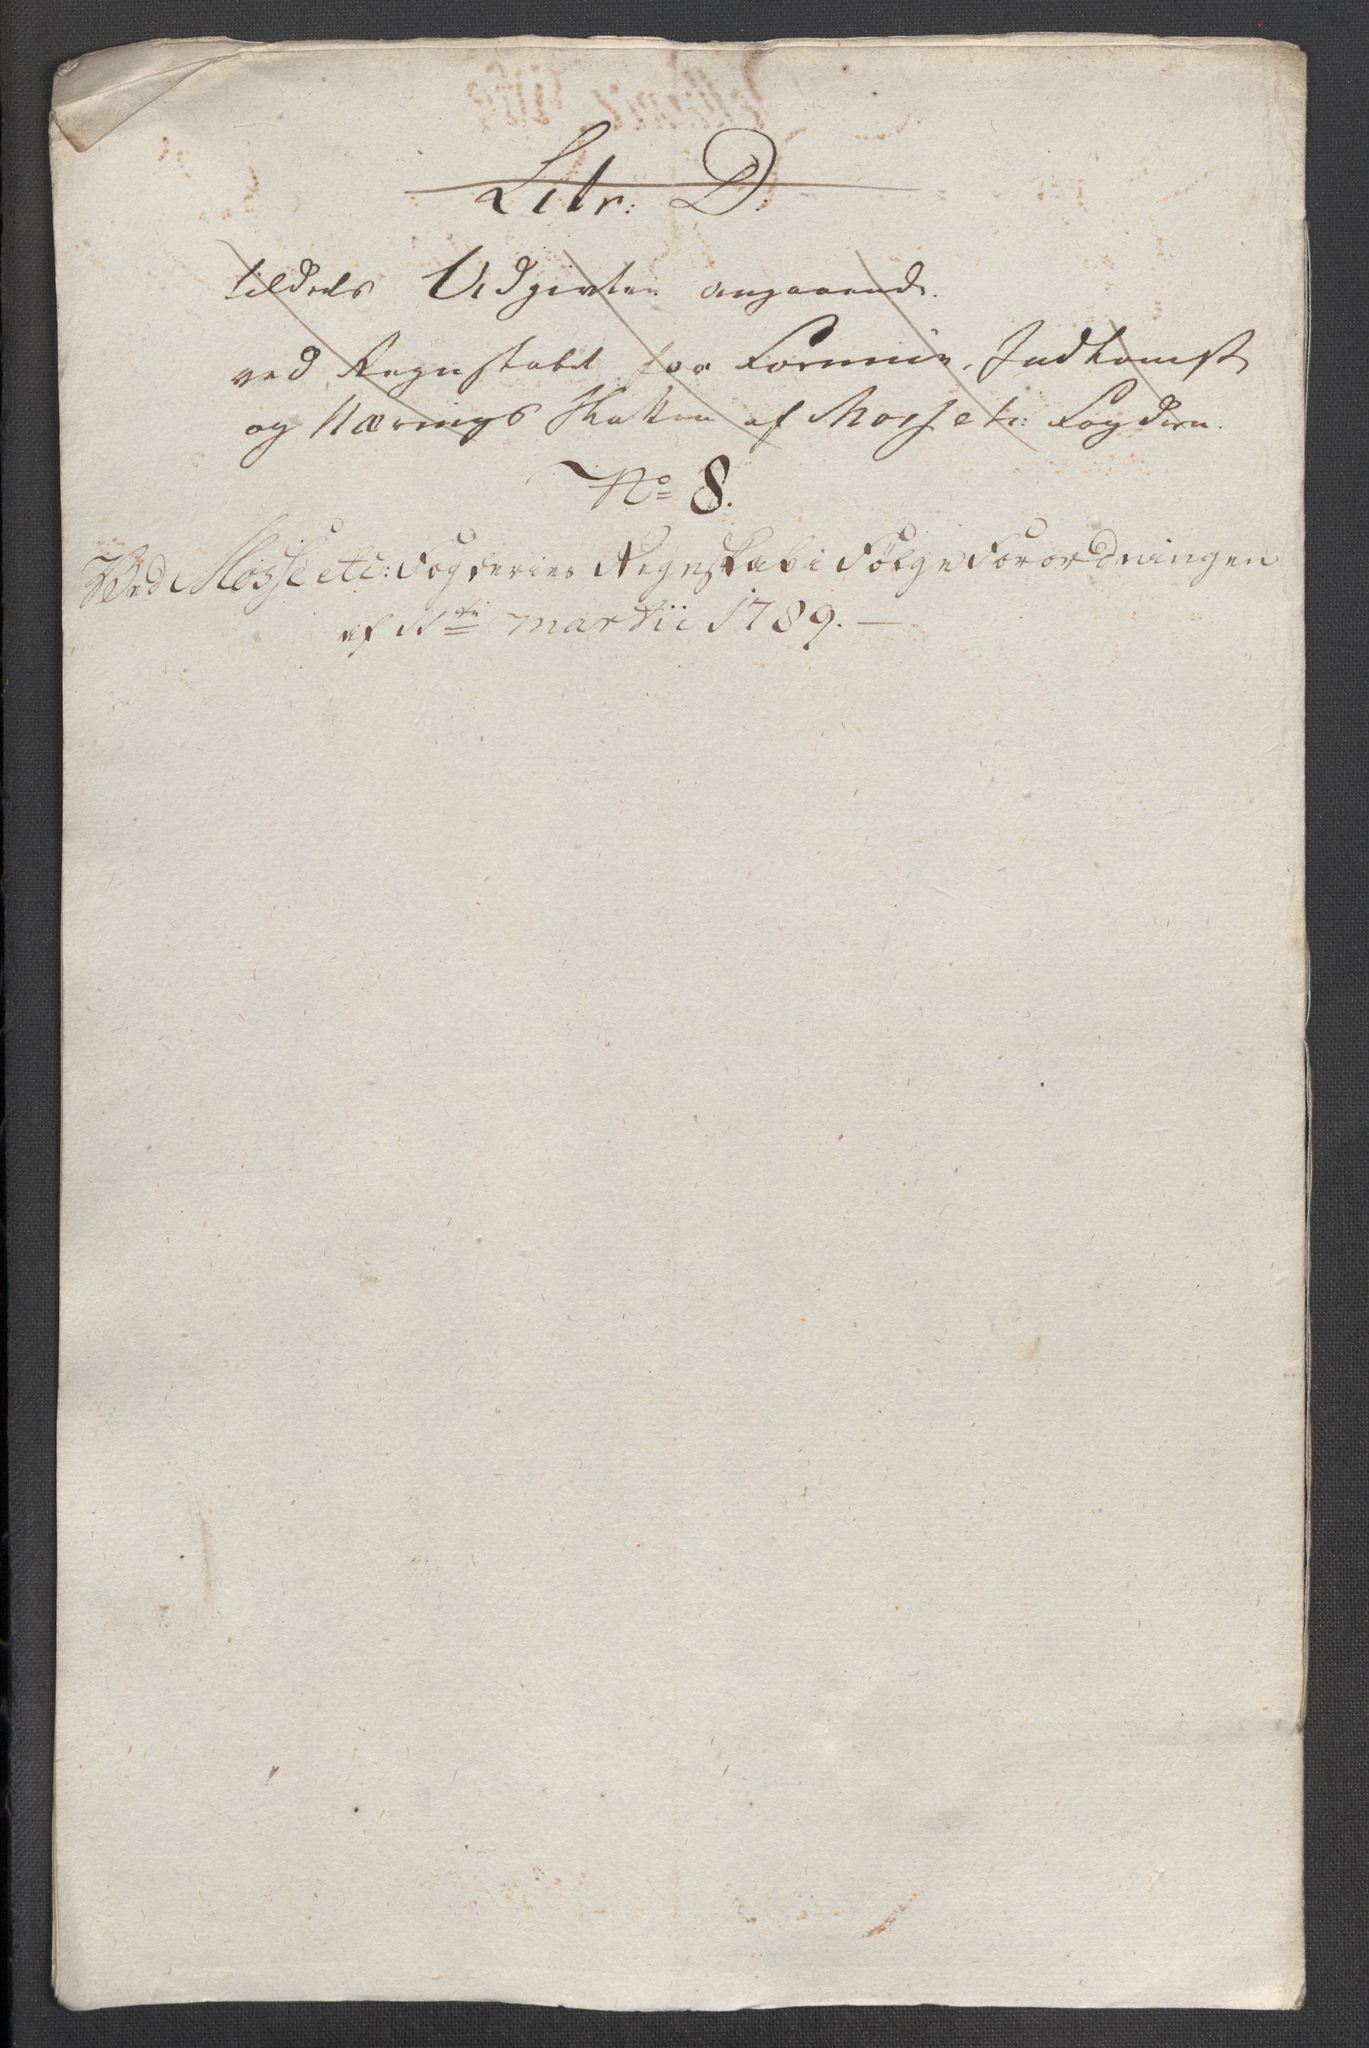 Litr: D:
tildels Udgivter angaaende
ved Regnskabet for Formue, Indkomst
og Nærings Skatten af Moss etc: Fogderie.
No 8.
Ved Mosse etc: Fogderies Regnskab i Følge Forordningen
af 11te Martii 1789. —